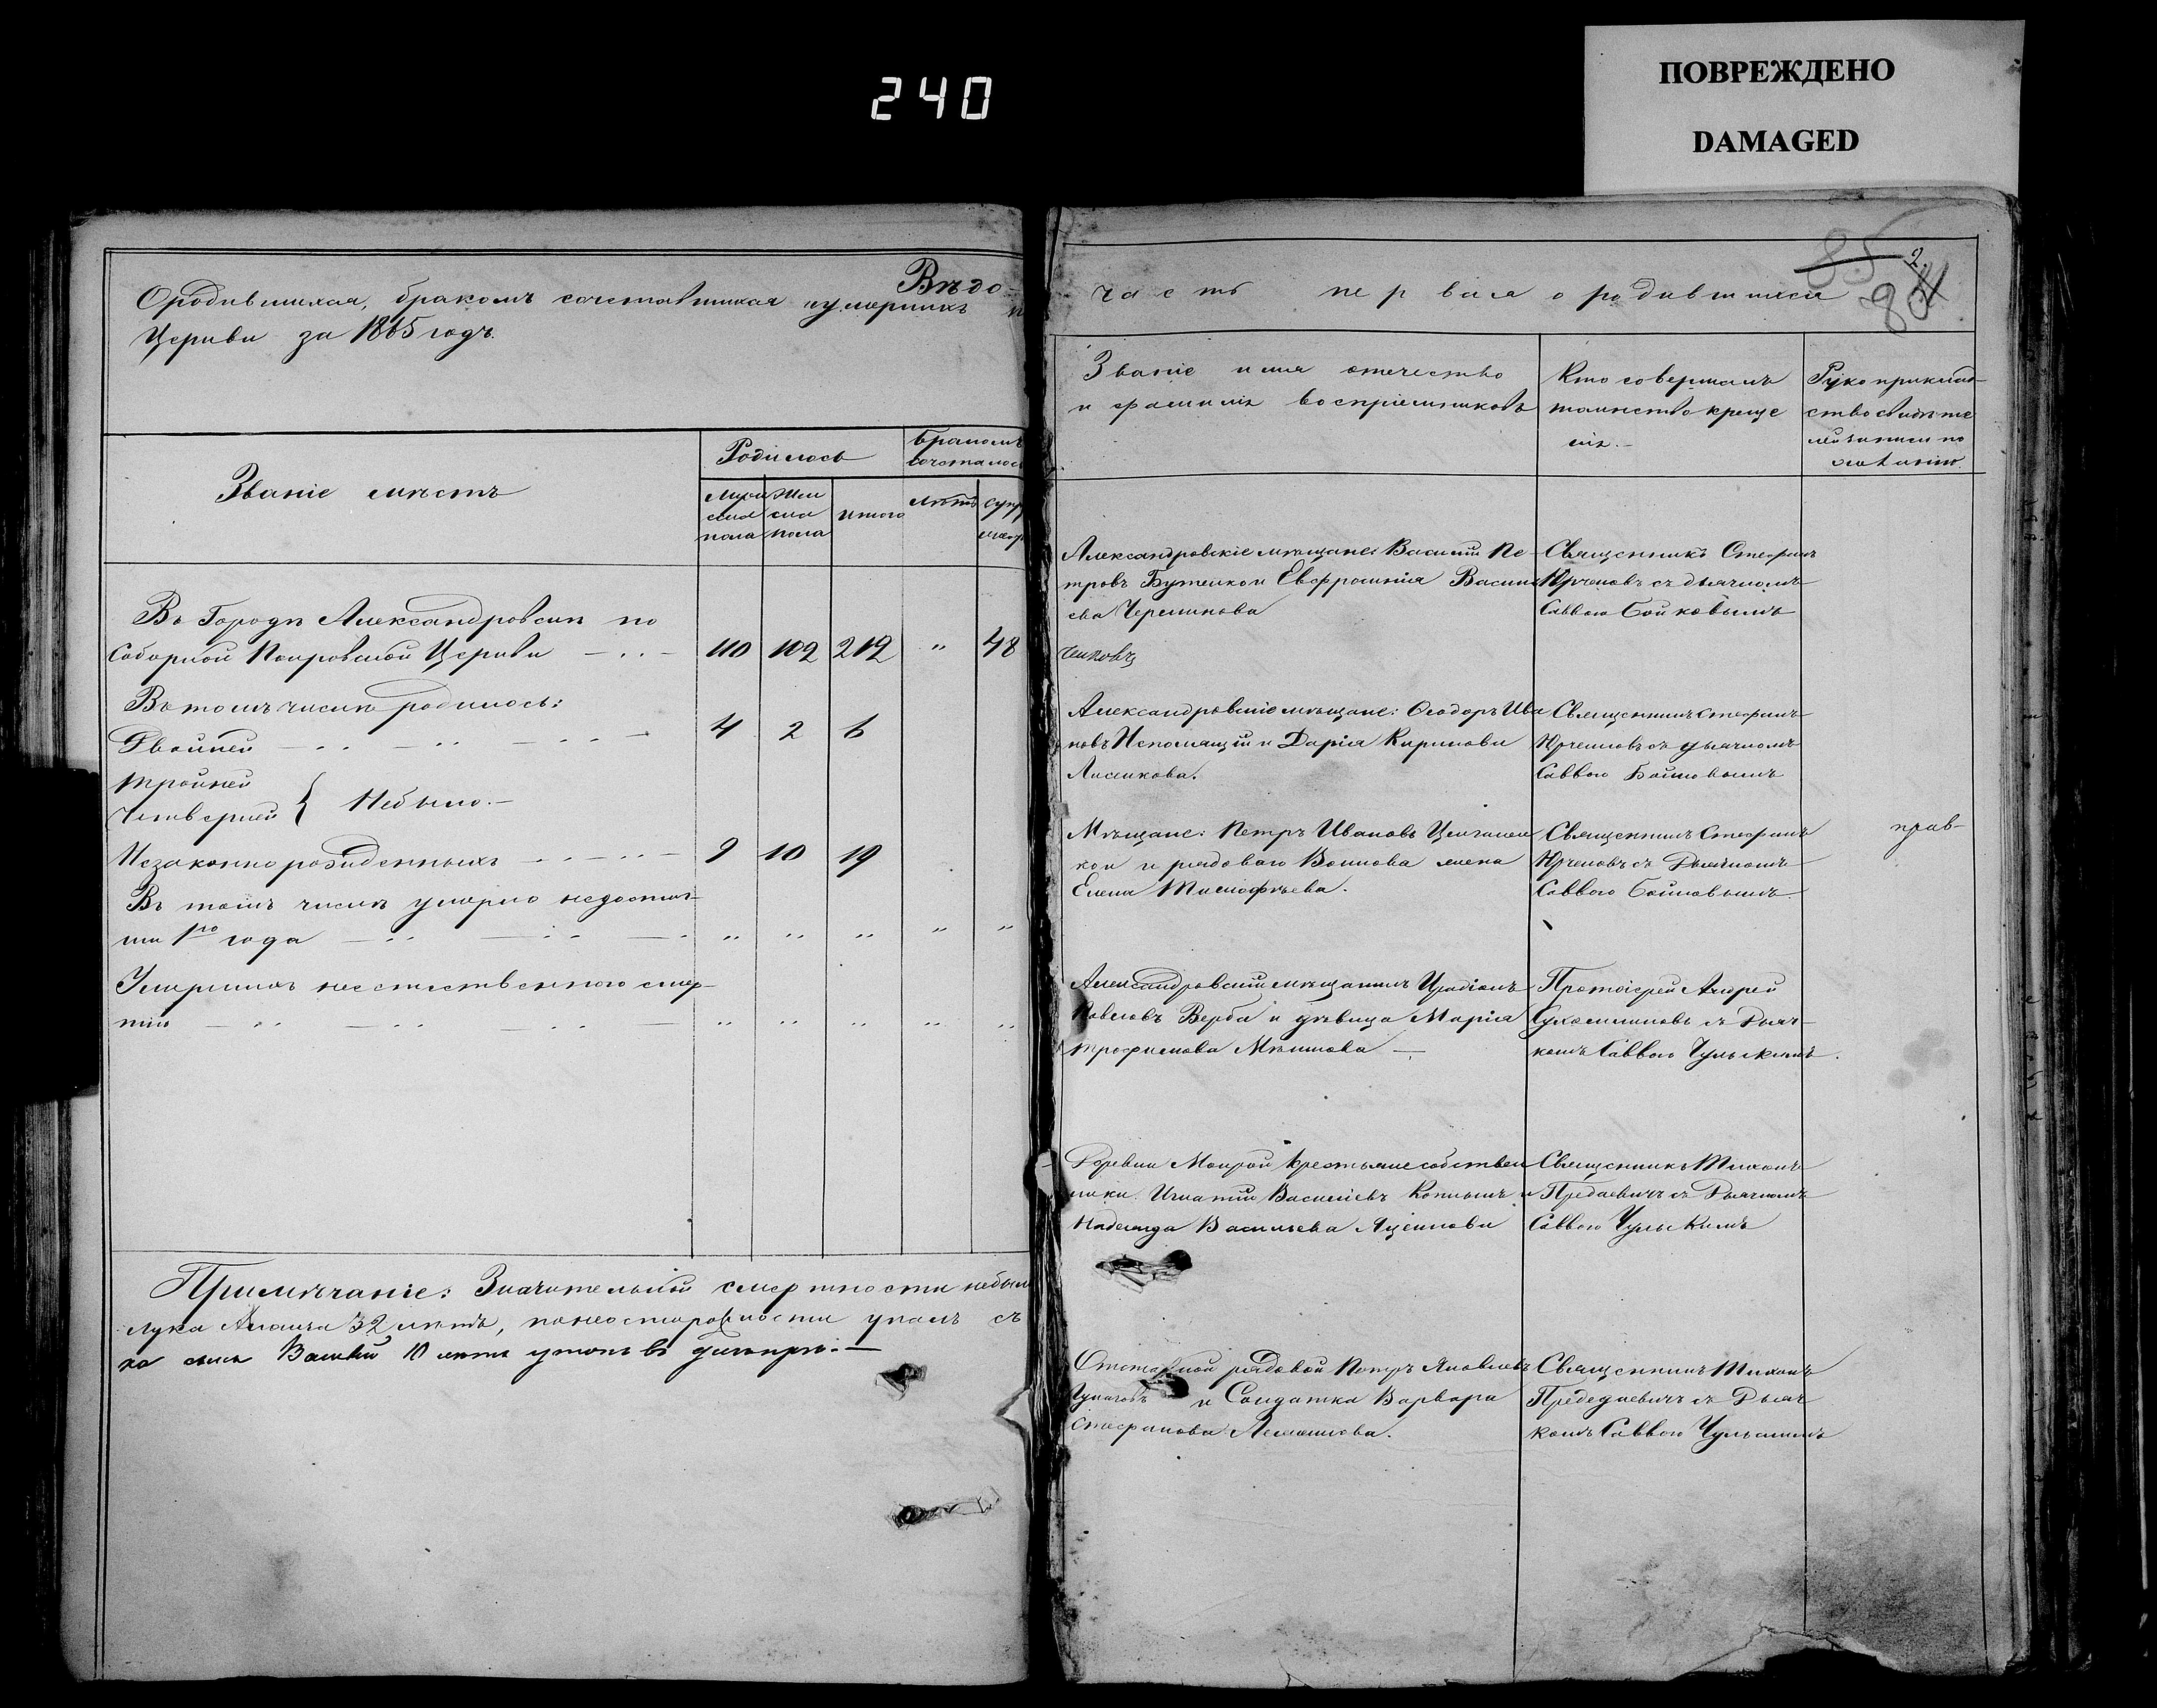 240
ПОВРЕЖДЕНО
DAMAGED
Вѣдо-
О родившихся, бракомъ сочетавшихся и умершихъ
Церкви за 1865 годъ.
Званіе мѣстъ
Родилось
Бракомъ
сочеталось
Муж
ска
пола
Жен
ска
пола
итого
лѣтъ
супр
Въ Городѣ Александровскѣ по
Соборной Покровской Церкви
110 102 212 " 48
Въ томъ числѣ родилось:
Двойней
4 2 6
Тройней
Четверней } Небыло.-
Незаконнорожденныхъ
9 10 19
Въ томъ числѣ умерло недостиг-
ши 1го года
Умершихъ неестественного смер-
тію
Примѣчаніе: Значительной смертности небыло
Лука 32 лѣтъ, по неосторожности упалъ съ
ка сынъ 10 летъ утопъ въ днѣпрѣ.-
Часть первая о родившихся
2.
85
84
Званіе имя отечество
и фамилія воспріемниковъ
Кто совершалъ
таинство креще
нія.-
Рукоприклад-
ство свидѣте
лей записи по
желанію
Александровскіе мѣщане: Василій Пе-
тровъ Бутенко и Евфросинія Василь
ева Черникова
Священникъ Стефанъ
Юрченковъ съ дьячкомъ
Саввою Бойковымъ
ченковъ
Александровскіе мѣщане: Ѳеодоръ Ива
новъ и Дарія Кирилова
Лисенкова.
Священникъ Стефанъ
Юрченковъ съ дьячкомъ
Саввою Бойковымъ
Мѣщане: Петръ Ивановъ
ко и рядоваго Воинова жена
Елена Тимофѣева.
Священникъ Стефанъ
Юрченковъ съ Дьячкомъ
Саввою Бойковымъ.
прав-
Александровскій мѣщанинъ Иродіонъ
Павловъ Верба и дѣвица Марія
Трофимова
Протоіерей Андрей
Сухомлиновъ съ Дьяч-
комъ Саввою Чульскимъ.
Деревни Мокрой крестьяне собствен
ники: Игнатій Василіевъ и
Надежда Васильева Яценкова
Священникъ Тихонъ
съ Дьячкомъ
Саввою Чульскимъ
Отставной рядовой Петръ Яковлевъ
и Солдатка Варвара
Стефанова
Священникъ Тихонъ
съ Дьяч
комъ Саввою Чульскимъ